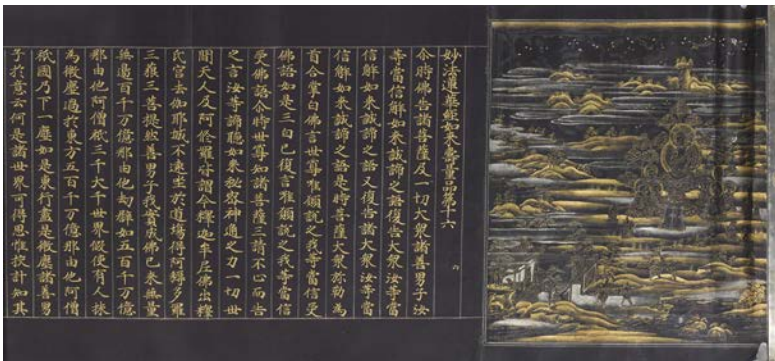 妙法蓮華經如來壽量品第十六
尒時佛告諸菩薩及一切大衆諸善男子汝
等當信解如來誠諦之語復告大衆汝等當
信解如來誠諦之語又復告諸大衆汝等當
信解如來誠諦之語是時菩薩大衆弥勒為
首合掌白佛言世尊惟願說之我等當信受
佛語如是三白已復言惟願說之我等當信
受佛語尒時世尊知諸菩薩三請不止而告
之言汝等諦聽如來秘密神通之力一切世
間天人及阿脩羅皆謂今釋迦牟尼佛出釋
氏宮去伽耶城不遠坐於道場得阿耨多羅
三藐三菩提然善男子我實成佛已來無量
無邊百千万億那由他劫譬如五百千万億
那由他阿僧祇三千大千世界假使有人抹
為微塵過於東方五百千万億那由他阿僧
祇國乃下一塵如是東行盡是微塵諸善男
子於意云何是諸世界可得思惟挍計知其